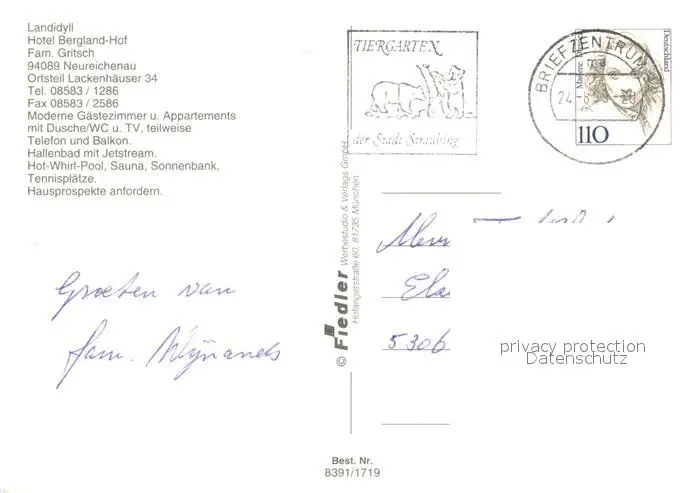 Landidyll
Hotel Bergland-Hof
Fam. Gritsch
94089 Neureichenau
Ortsteil Lackenhäuser 34
Tel. 08583 / 1286
Fax 08583 / 2586
Moderne Gästezimmer u. Appartements
mit Dusche/WC u. TV, teilweise
Telefon und Balkon.
Hallenbad mit Jetstream.
Hot-Whirl-Pool, Sauna, Sonnenbank,
Tennisplätze.
Hausprospekte anfordern.
Groeten van
fam. Wijnands
© Fiedler Werbestudio & Verlags GmbH
Hofangerstraße 60, 81735 München
TIERGARTEN
der Stadt Straubing
BRIEFZENTRUM
Deutschland
Marlene
110
5306
privacy protection
Datenschutz
Best. Nr.
8391/1719